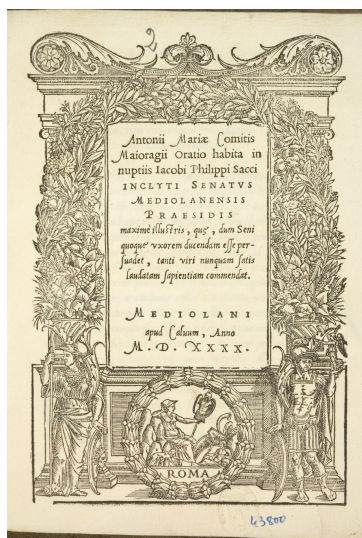 2
Antonii Mariæ Comitis
Maioragii Oratio habita in
nuptiis Iacobi Philippi Sacci
INCLYTI SENATVS
MEDIOLANENSIS
PRAESIDIS
maximè illustris, quę, dum Seni
quoque vxorem ducendam esse per-
suadet, tanti viri nunquam satis
laudatam sapientiam commendat.
MEDIOLANI
apud Caluum, Anno
M. D. XXXX.
ROMA
43800